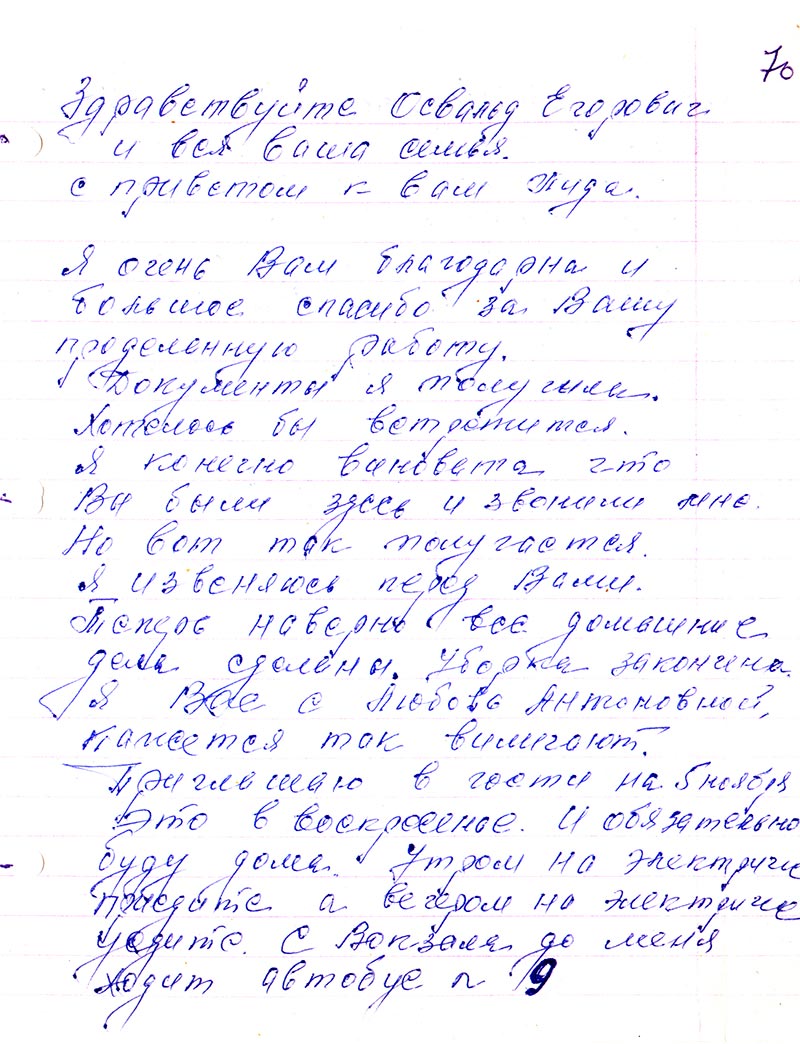 70
Здравствуйте Освальд Егорович
и вся ваша семья.
с приветом к вам Лида.
Я очень Вам благодарна и
большое спасибо за Вашу
проделенную работу.
Документы я получила.
Хотелось бы встретится.
Я конечно виновата что
Вы были здесь и звонили мне.
Но вот так получается.
Я извеняюсь перед Вами.
Теперь наверно все домашние
дела сделаны. Уборка закончена.
Я Вас с Любовь Антоновной,
кажется так
Приглашаю в гости на 5 ноября
Это в воскресенье. И обязательно
буду дома. Утром на электричке
приедите а вечером на электричке
уедите. С Вокзала до меня
ходит автобус n 9